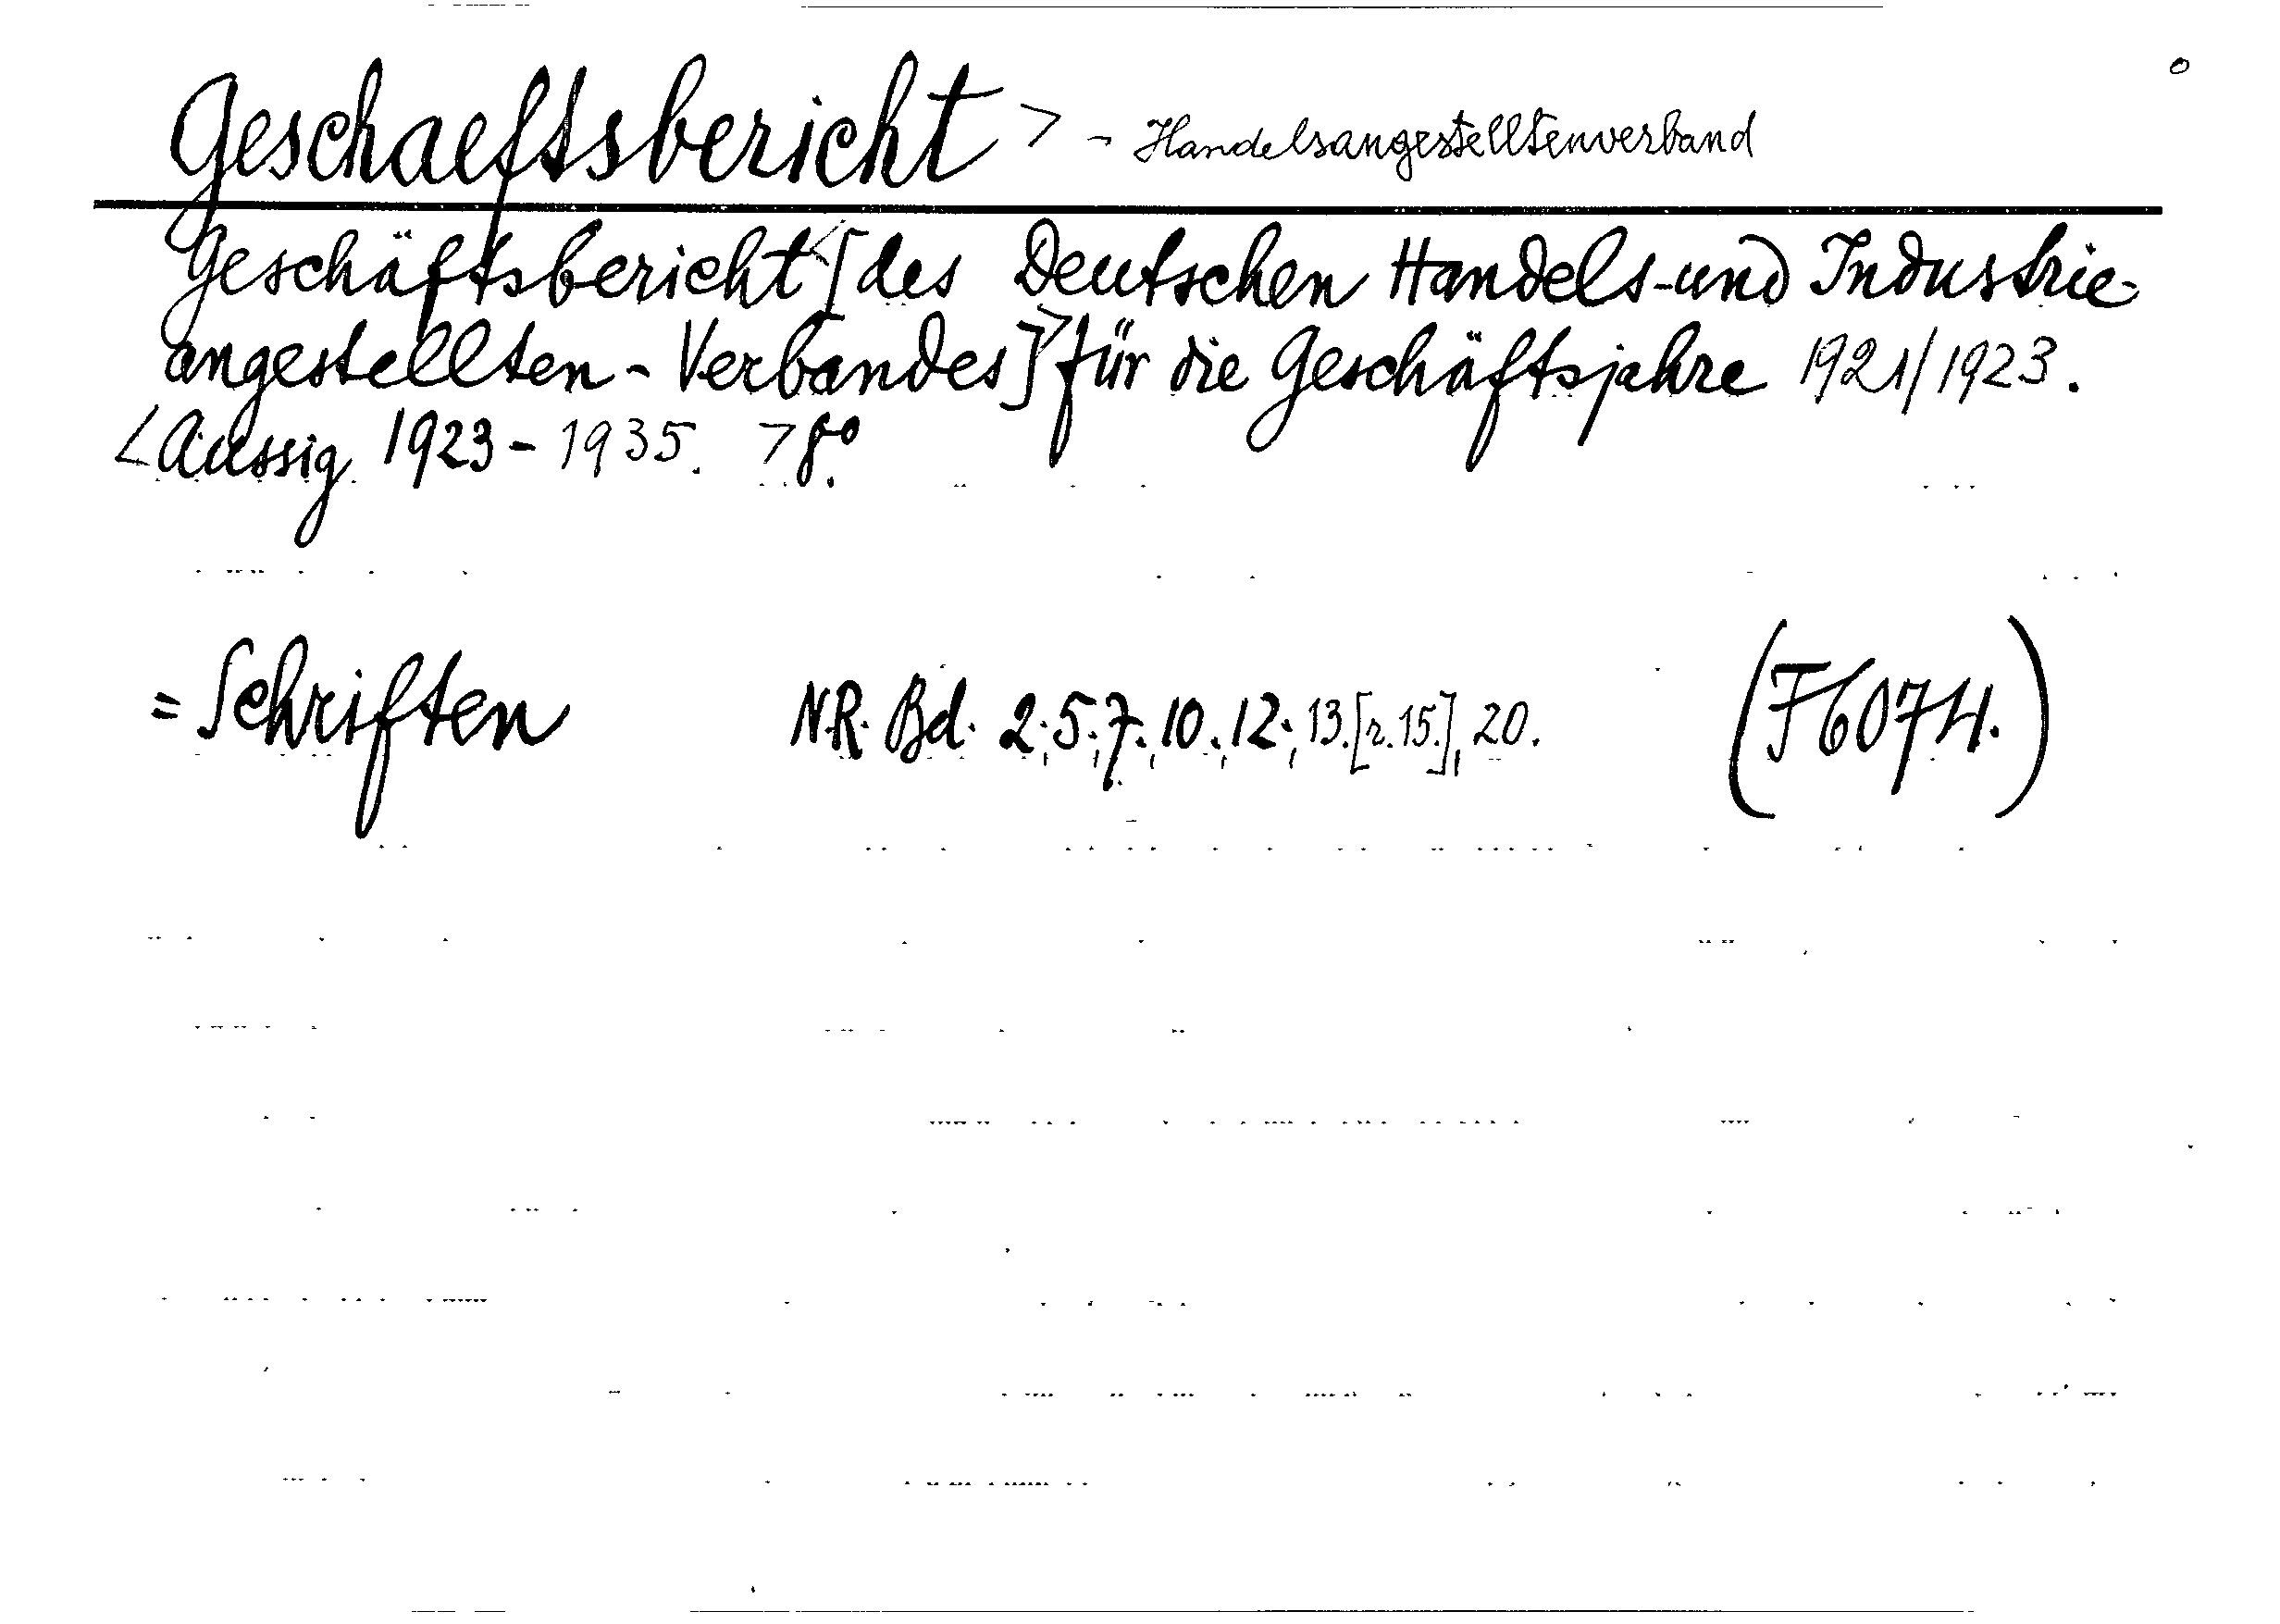 Geschaeftsbericht > - Handelsangestelltenverband
Geschäftsbericht <[des Deutschen Handels- und Industrie-
angestellten-Verbandes]> für die Geschäftsjahre 1921/1923.
<Aussig 1923-1935. > 8°.
= Schriften N.R. Bd. 2.; 5.; 7.; 10.; 12.; 13.[r.15.], 20. (F6074.)